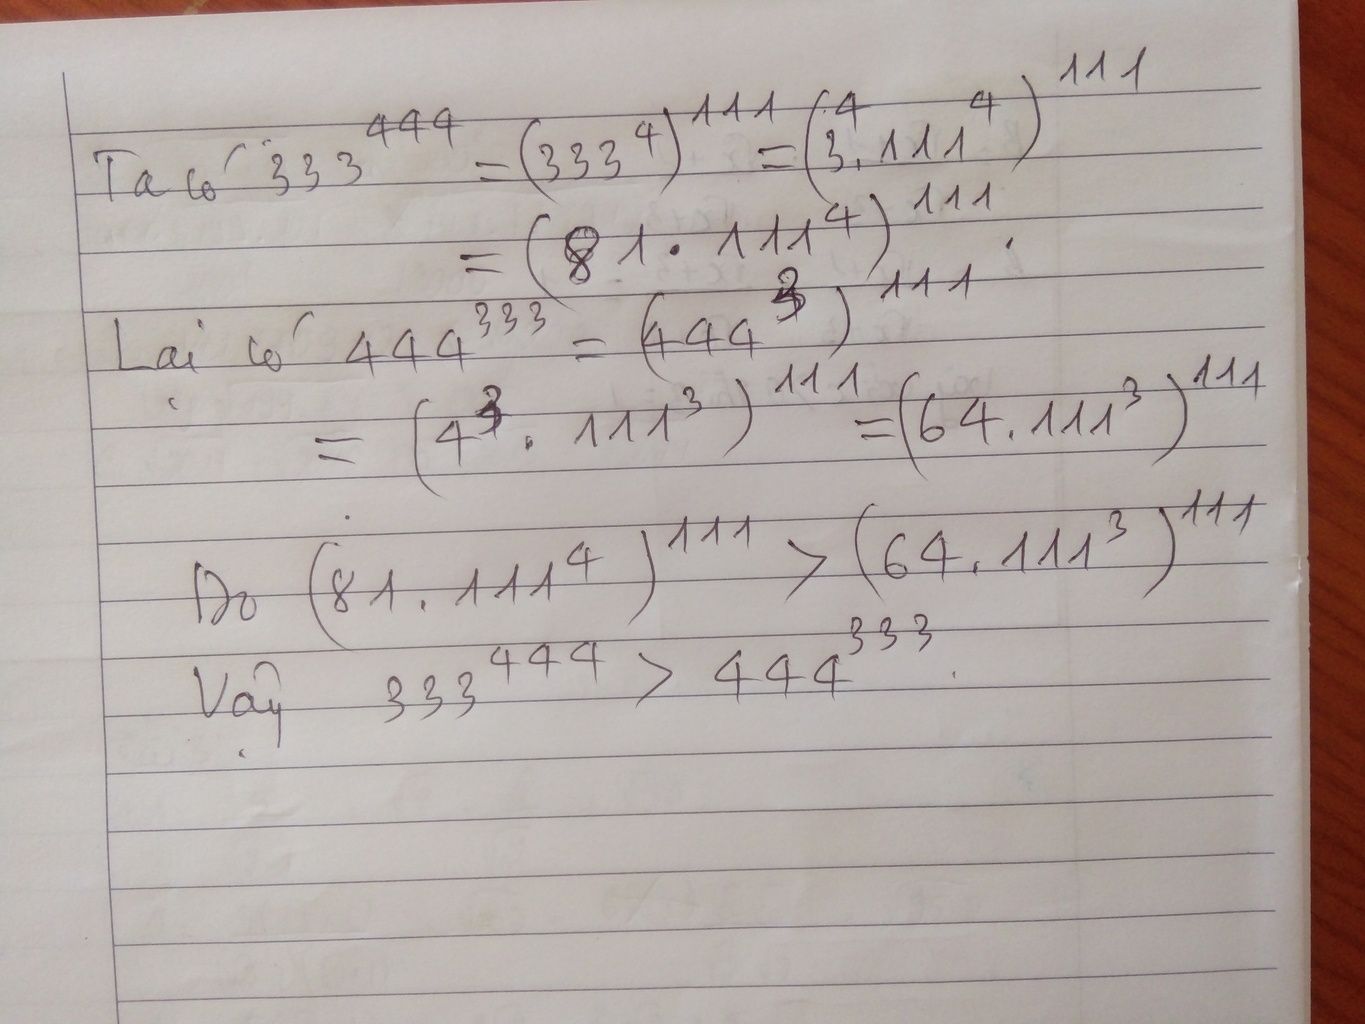 Ta có 333^444 = (333^4)^111 = (3^4.111^4)^111
= (81.111^4)^111
Lại có 444^333 = (444^3)^111
= (4^3.111^3)^111 = (64.111^3)^111
Do (81.111^4)^111 > (64.111^3)^111
Vậy 333^444 > 444^333.